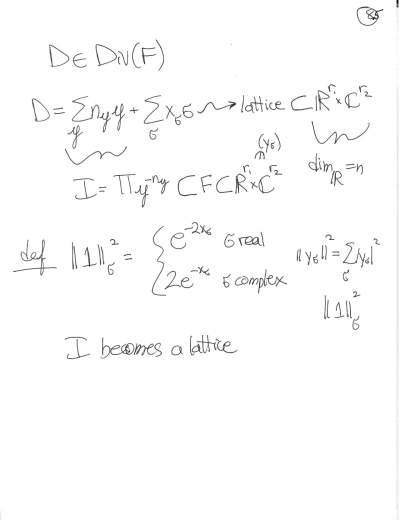 85
D ∈ Div(F)
D = Σ_y n_y y + Σ_σ x_σ σ ⇝ lattice ⊂ ℝ^{r_1} × ℂ^{r_2}
(y_σ)
I = ∏ y^{-n_y} ⊂ F ⊂ ℝ^{r_1} × ℂ^{r_2} dim_ℝ = n
def ‖1‖²_σ = { e^{-2x_σ} σ real
2e^{-x_σ} σ complex
‖y_σ‖² = Σ_σ |y_σ|² ‖1‖²_σ
I becomes a lattice